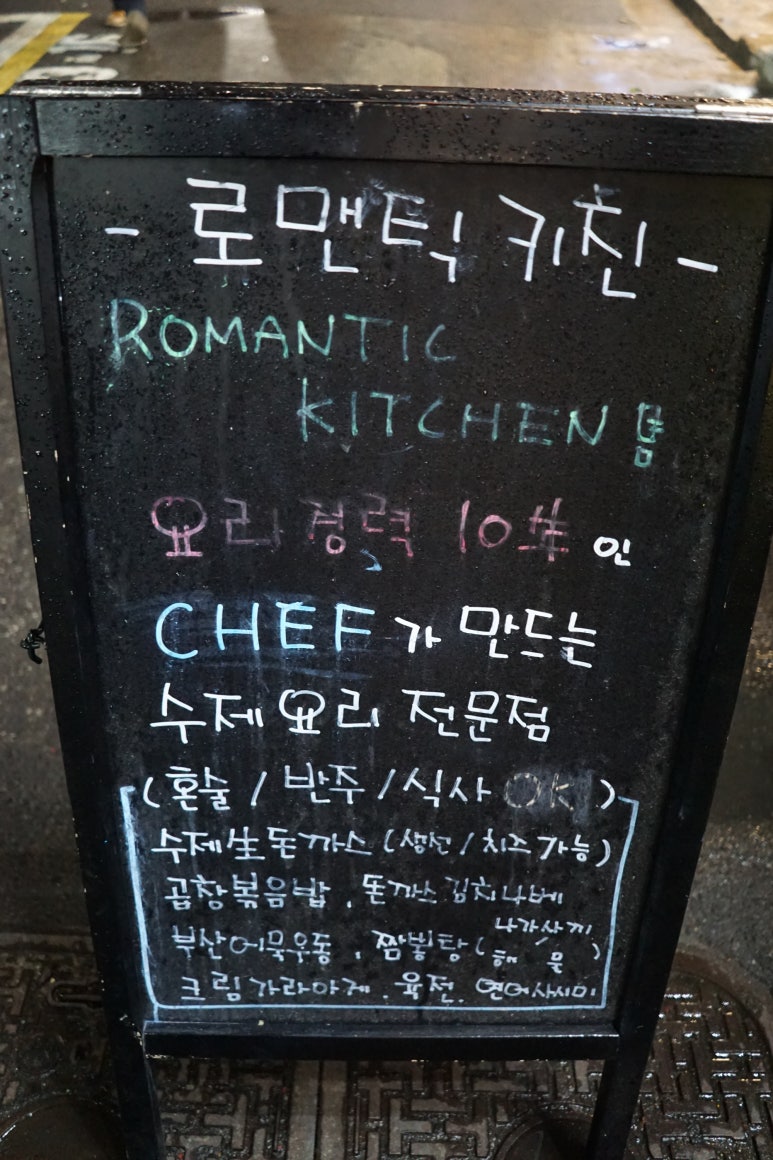 - 로맨틱 키친 -
ROMANTIC
KITCHEN
요리경력 10年 인
CHEF가 만드는
수제 요리 전문점
(혼술 / 반주 / 식사 OK)
수제生돈까스 (생선 / 치즈 가능)
곱창볶음밥 , 돈까스김치나베
부산어묵우동 , 짬뽕탕 (나가사끼 / 해물)
크림가라아게 . 육전. 연어사시미